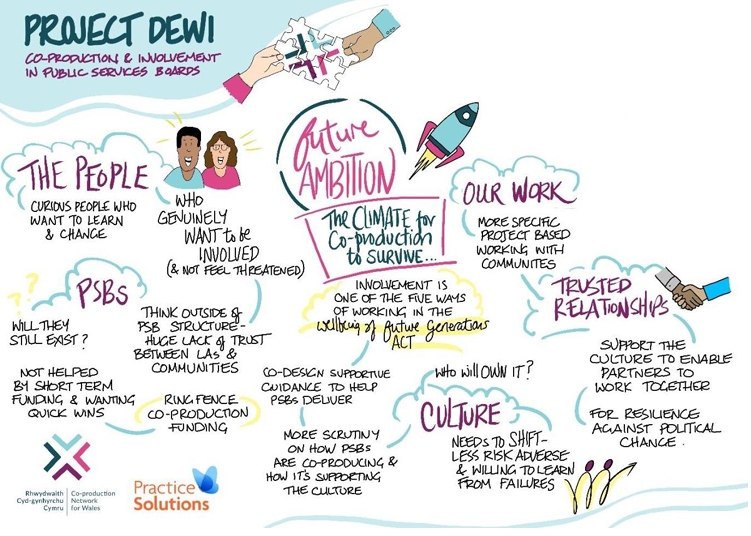 PROJECT DEWI
CO-PRODUCTION & INVOLVEMENT
IN PUBLIC SERVICES BOARDS
future
AMBITION
The CLIMATE for
Co-production
to SURVIVE...
THE PEOPLE
CURIOUS PEOPLE WHO
WANT TO LEARN
& CHANGE
WHO
GENUINELY
WANT to be
INVOLVED
(& NOT FEEL THREATENED)
OUR WORK
MORE SPECIFIC
PROJECT BASED
WORKING WITH
COMMUNITES
??
PSBs
WILL THEY
STILL EXIST?
NOT HELPED
BY SHORT TERM
FUNDING & WANTING
QUICK WINS
THINK OUTSIDE of
PSB STRUCTURE-
HUGE LACK of TRUST
BETWEEN LAs &
COMMUNITIES
RING FENCE
CO-PRODUCTION
FUNDING
INVOLVEMENT IS
ONE OF THE FIVE WAYS
OF WORKING IN THE
wellbeing of future Generations
ACT
CO-DESIGN SUPPORTIVE
GUIDANCE TO HELP
PSBs DELIVER
MORE SCRUTINY
ON HOW PSBs
ARE CO-PRODUCING &
HOW IT'S SUPPORTING
THE CULTURE
Who WILL OWN IT?
CULTURE
NEEDS TO SHIFT-
LESS RISK ADVERSE
& WILLING TO LEARN
FROM FAILURES
TRUSTED
RELATIONSHIPS
SUPPORT THE
CULTURE TO ENABLE
PARTNERS TO
WORK TOGETHER
FOR RESILIENCE
AGAINST POLITICAL
CHANGE.
Rhwydwaith
Cyd-gynhyrchu
Cymru
Co-production
Network
for Wales
Practice
Solutions